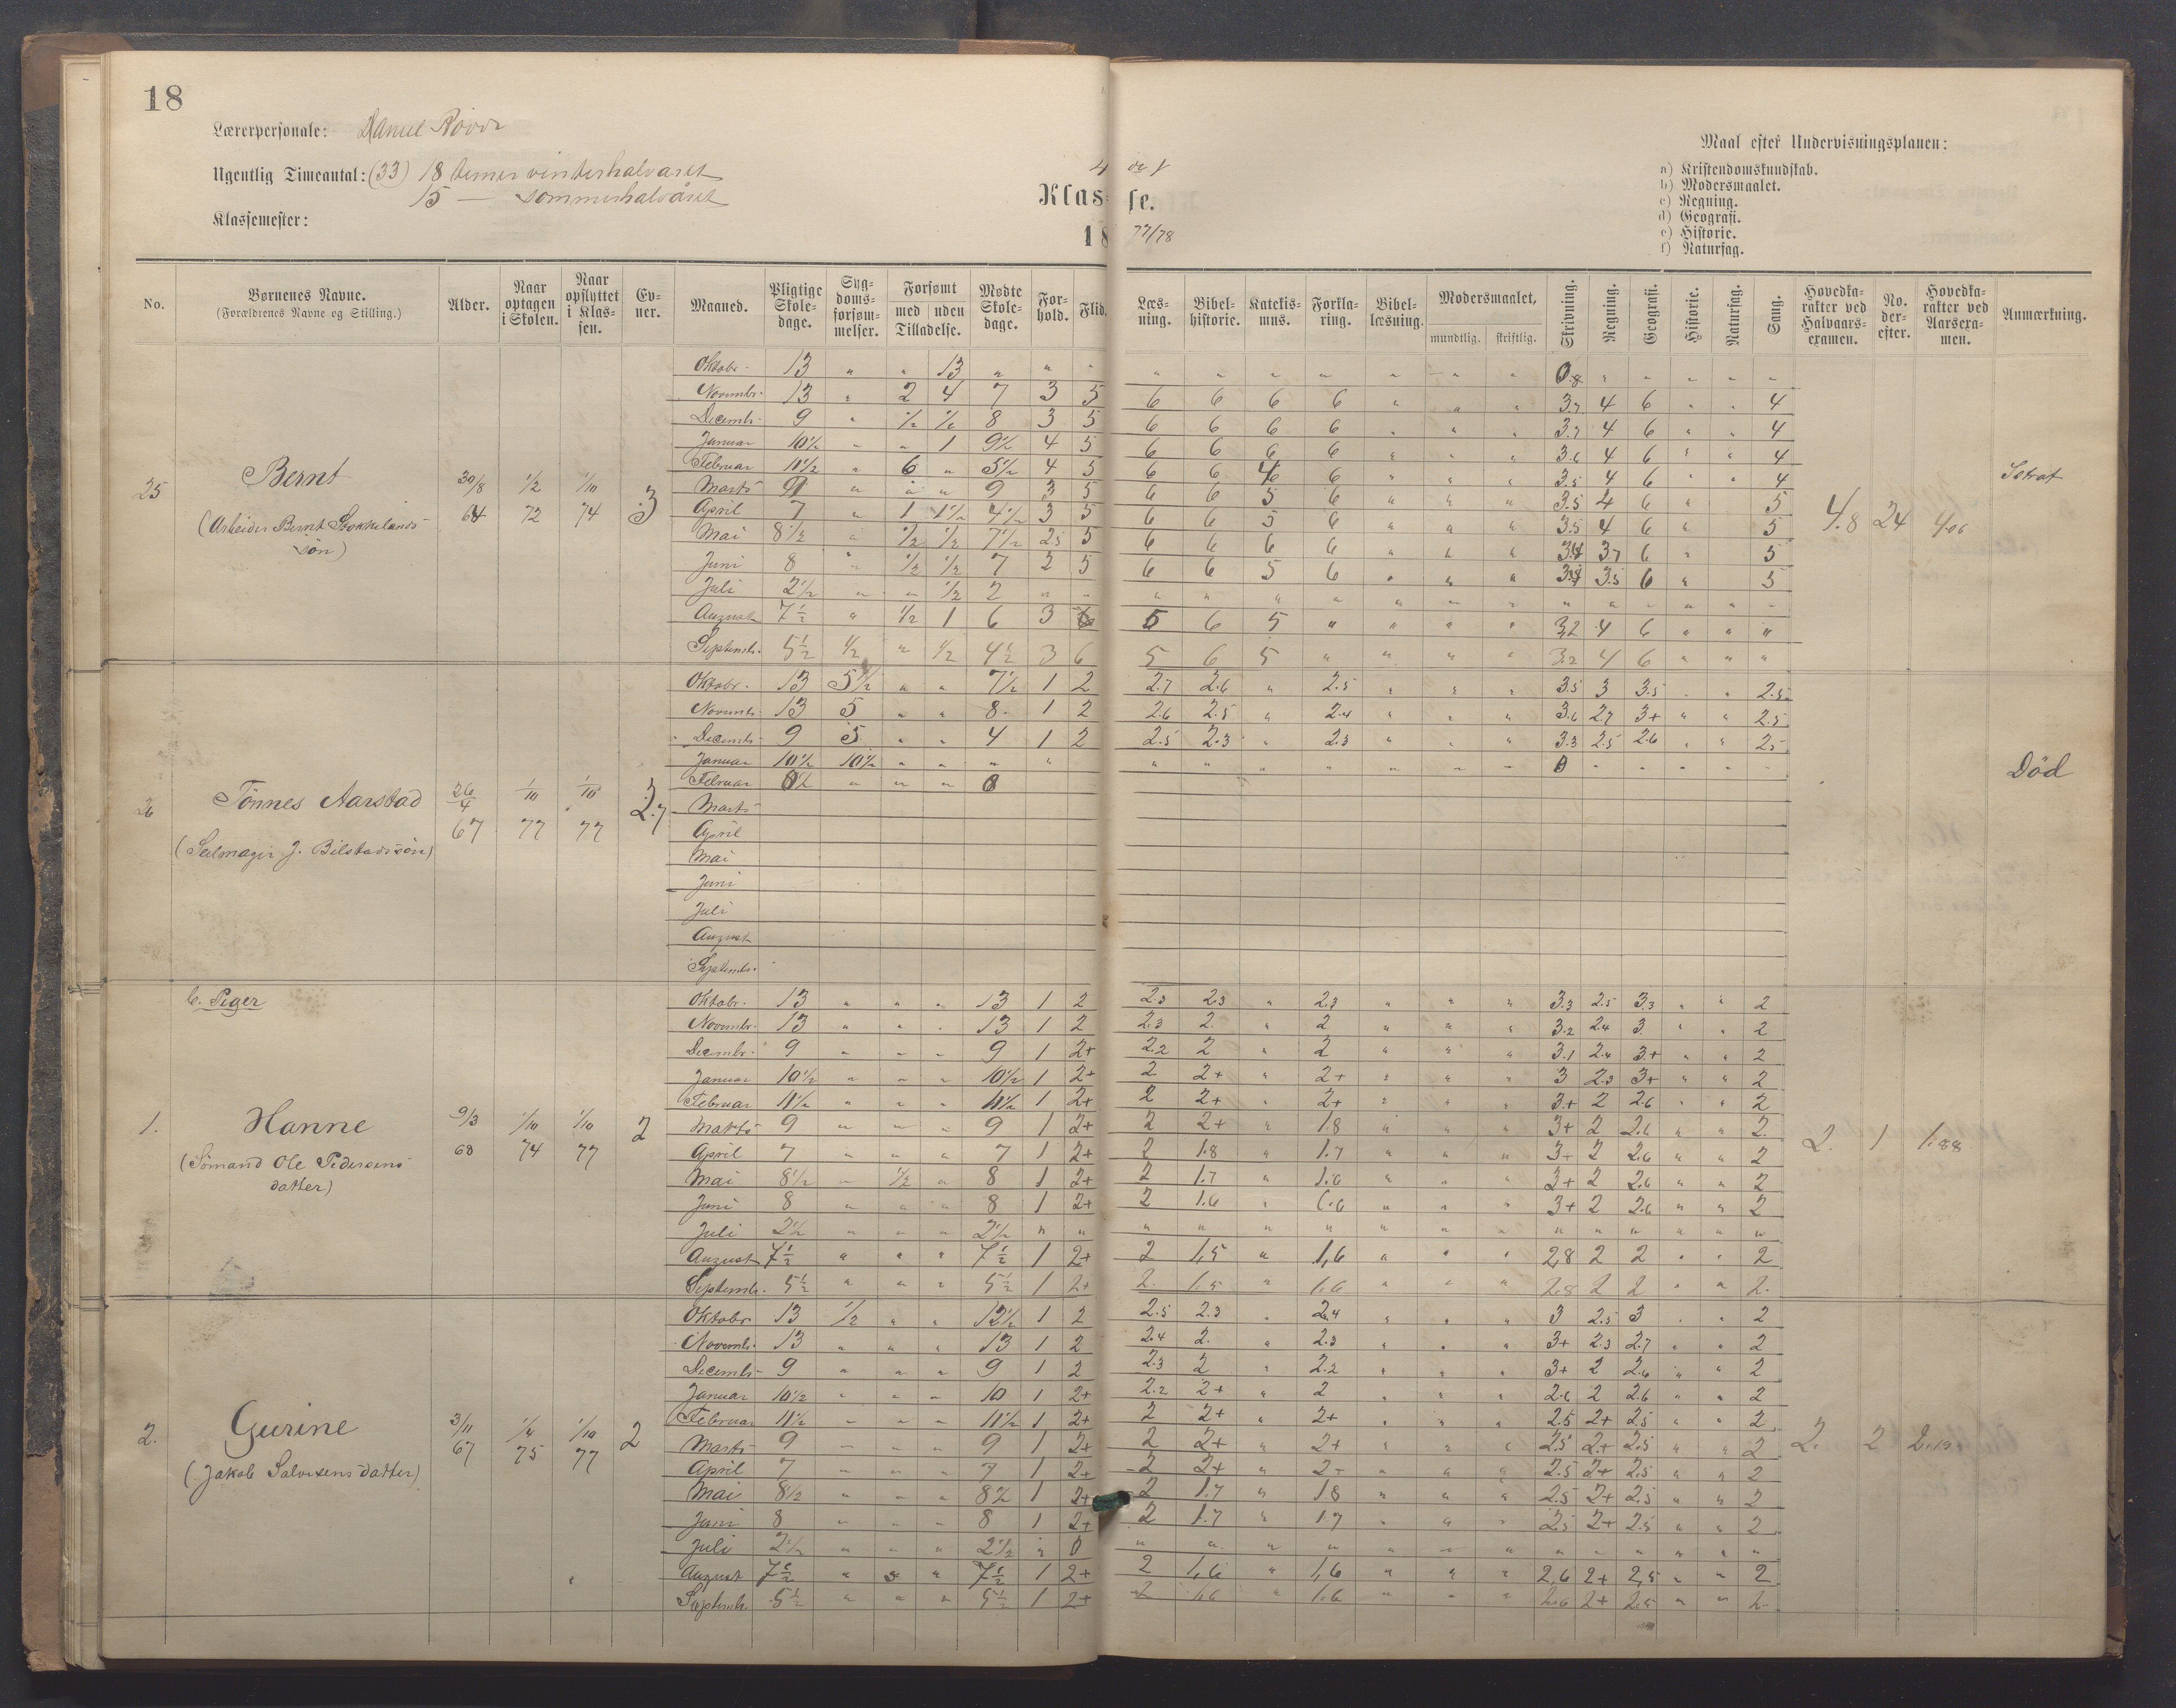 18
Lærerpersonale: Daniel
Ugentlig Timeantal: (33) 18 timer vinterhalvaret
15 — sommerhalvåret
Klassemester:
Klasse.
1877/78
Maal efter Undervisningsplanen:
a) Kristendomskundskab.
b) Modersmaalet.
c) Regning.
d) Geografi.
e) Historie.
f) Naturfag.
No. Børnenes Navne. (Forældrenes Navne og Stilling.) Alder. Naar optagen i Skolen. Naar opflyttet i Klassen. Evner. Maaned. Pligtige Skoledage. Sygdomsforsømmelser. Forsømt med uden Tilladelse. Mødte Skoledage. Forhold. Flid. Læsning. Bibelhistorie. Katekismus. Forklaring. Bibellæsning. Modersmaalet, mundtlig. skriftlig. Skrivning. Regning. Geografi. Historie. Naturfag. Gang. Hovedkarakter ved Halvaarsexamen. No. derefter. Hovedkarakter ved Aarsexamen. Anmærkning.
25 Bernt
(Arbeider Bernt Stokkelands søn)
30/8 64 1/2 72 1/10 74 3
Oktobr. 13 " " 13 " " " " " " " " " "
Novembr. 13 " 2 4 7 3 5 6 6 6 6 " " " 3.7 4 6 " " 4
Decembr. 9 " 1/2 1/2 8 3 5 6 6 6 6 " " " 3.7 4 6 " " 4
Januar 10 1/2 " " 1 9 1/2 4 5 6 6 6 6 " " " 3.6 4 6 " " 4
Februar 11 1/2 " 6 " 5 1/2 4 5 6 6 6 " " " 3.5 4 6 " " 4
Marts 9 " " " 9 3 5 6 6 5 6 " " " 3.5 4 6 " 5
April 7 " 1 1 1/2 4 1/2 3 5 6 6 5 6 " " " 3.5 4 6 " 5
Mai 8 1/2 " 1/2 1/2 7 1/2 2.5 5 6 6 6 6 " " " 3.7 6 " 5
Juni 8 " 1/2 1/2 7 2 5 6 6 5 6 " " " 3.5 6 " 5
Juli 2 1/2 " " 1/2 2 " " " " " " " " " " " " " " "
August 7 1/2 " 1/2 1 6 3 6 5 6 5 " " " " 3,2 4 6 " " "
Septembr. 5 1/2 1/2 " 1/2 4 1/2 3 6 5 6 5 " " " " 3.2 4 6 " " "
4.8 24 4.06
26 Tönnes Aarstad
(Seilmager J. Bilstads søn)
26/4 67 1/10 77 1/10 77 2.7
Oktobr. 13 5 1/2 " " 7 1/2 1 2 2.7 2.6 " 2.5 " " " 3.5 3 3.5 " " 2.5
Novembr. 13 5 " " 8 1 2 2.6 2.5 " 2.4 " " " 3.6 2.7 3+ " " 2.5
Decembr. 9 5 " " 4 1 2 2.5 2.3 " 2.3 " " " 3.3 2.5 2.6 " " 2.5
Januar 10 1/2 10 1/2 " " " " " " " " " " "
Februar " " "
Marts
April
Mai
Juni
Juli
August
Septembr.
Död
b. Piger
1. Hanne
(Sömand Ole Pedersens datter)
9/3 68 1/10 74 1/10 77 2
Oktobr. 13 " " " 13 1 2 2.3 2.3 " 2.3 " " " 3.3 2.5 3.3 " " 2
Novembr. 13 " " " 13 1 2 2.3 2. " 2 " " " 3.2 2.4 3 " " 2
Decembr. 9 " " " 9 1 2+ 2.2 2 " 2 " " " 3.1 2.4 3+ " " 2
Januar 10 1/2 " " " 10 1/2 1 2+ 2 2+ " 2+ " " " 3 2.3 3+ " " 2
Februar 11 1/2 " " " 11 1/2 1 2+ 2 2+ " 2+ " " " 3+ 2 2.6 " " 2
Marts 9 " " " 9 1 2+ 2 2+ " 1.8 " " " 3+ 2 2.6 " " 2
April 7 " " " 7 1 2+ 2 1.8 " 1.7 " " " 3+ 2 2.6 " " 2
Mai 8 1/2 " 1/2 " 8 1 2+ 2 1.7 " 1.6 " " " 3+ 2 2.6 " " 2
Juni 8 " " " 8 1 2+ 2 1.6 " 1.6 " " " 3+ 2 2.6 " " 2
Juli 2 1/2 " " " 2 1/2 " " " " " " " " " " " " " " "
August 7 1/2 " " " 7 1/2 1 2+ 2 1,5 " 1,6 " " " 2,8 2 2 " " 2
Septembr. 5 1/2 " " " 5 1/2 1 2+ 2. 1.5 " 1.6 " " " 2.8 2 2 " " 2.
2. 1 1.88
2. Gurine
(Jakob Salvesens datter)
3/11 67 1/4 75 1/10 77 2
Oktobr 13 1/2 " " 12 1/2 1 2 2.5 2.3 " 2.4 " " " 3 2.5 3 " " 2
Novembr. 13 " " " 13 1 2 2.4 2. " 2.3 " " " 3+ 2.3 2.7 " " 2
Decembr. 9 " " " 9 1 2 2.3 2 " 2.2 " " " 3+ 2 2.6 " " 2
Januar 10 1/2 " " " 10 1 2+ 2.2 2+ " 2 " " " 2.6 2 2.6 " " 2
Februar 11 1/2 " " " 11 1/2 1 2+ 2 2+ " 2+ " " " 2.5 2+ 2.5 " " 2
Marts 9 " " " 9 1 2+ 2 2+ " 2+ " " " 2.5 2+ 2.5 " " 2
April 7 " " " 7 1 2+ 2 2+ " 2+ " " " 2.5 2+ 2.5 " " 2
Mai 8 1/2 " " " 8 1/2 1 2+ 2 1.7 " 1.8 " " " 2.5 2+ 2.5 " " 2
Juni 8 " " " 8 1 2+ 2 1.7 " 1.7 " " " 2.5 2+ 2.5 " " 2
Juli 2 1/2 " " " 2 1/2 " " " " " " " " " " " " " "
August 7 1/2 " " " 7 1/2 1 2+ 2 1,6 " 1,6 " " " 2,6 2+ 2,5 " " 2
Septembr. 5 1/2 " " " 5 1/2 1 2+ 2 1.6 " 1.6 " " " 2.6 2+ 2.5 " " 2
2. 2